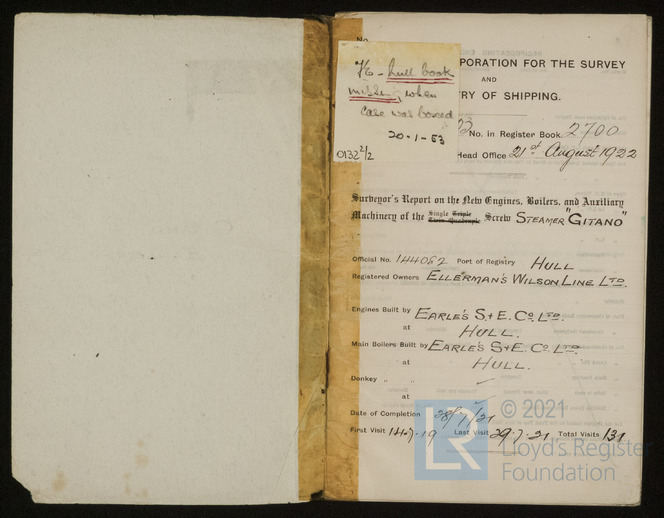 No.
PORATION FOR THE SURVEY
AND
RY OF SHIPPING.
hull book
when
Case was boxed
20-1-53
0132 2/2
No. in Register Book 2700
Head Office 21st August 1922
Surveyor's Report on the New Engines, Boilers, and Auxiliary
Machinery of the Single Triple Twin Quadruple Screw STEAMER "GITANO"
Official No. 144062 Port of Registry HULL
Registered Owners ELLERMAN'S WILSON LINE LTD.
Engines Built by EARLE'S S + E. Co. LTD.
at HULL.
Main Boilers Built by EARLE'S S + E. Co. LTD.
at HULL.
Donkey " "
at
Date of Completion 28/7/21
First Visit 14.7.19 Last Visit 29.7.21 Total Visits 131
LR © 2021
Lloyd's Register
Foundation